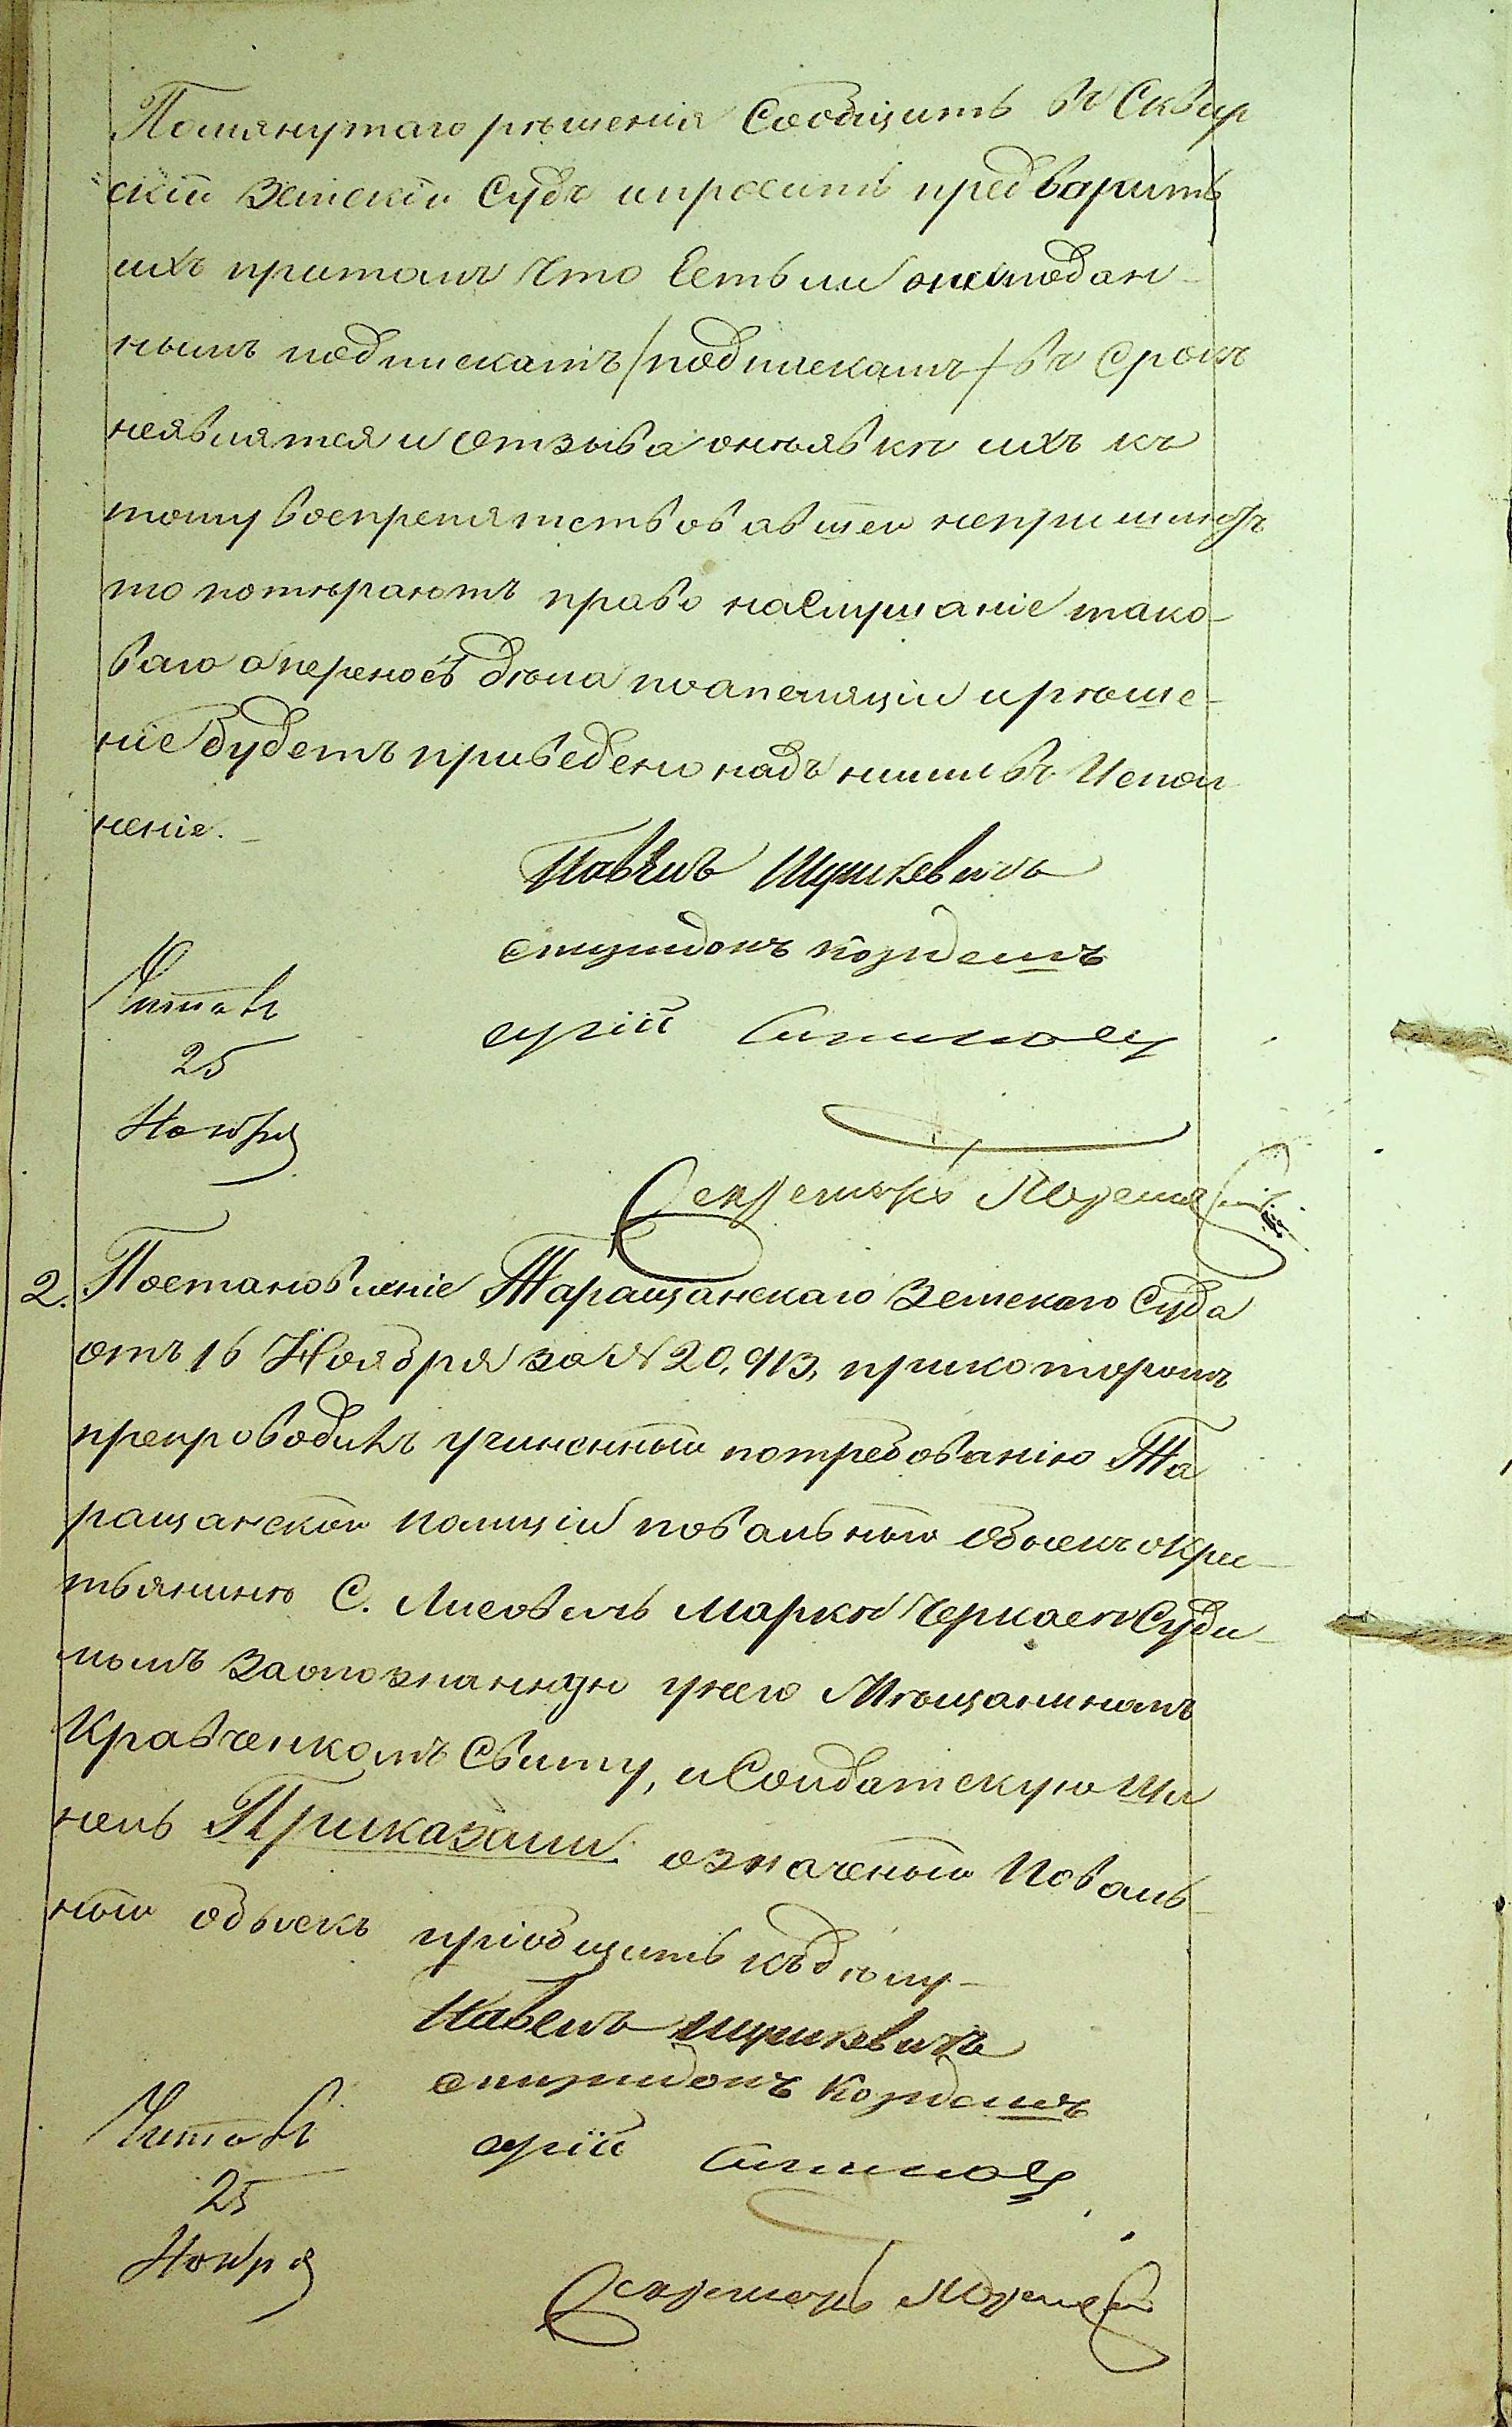 Помянутаго рѣшенія Сообщить въ Сквир
скій Земскій Судъ ипросить предварить
ихъ притомъ что Естьли они поодан
нымъ подпискамъ /подпискамъ/ въ срокъ
неявлятся и отзыва онѣявкѣ ихъ къ
тому воспрепятствовавшей непришлютъ
то потѣряютъ право наслушаніе тако-
ваго оПереносѣ дѣла поапеляціи ирѣше-
ніе Будетъ приведено надъ ними въ Испол
неніе.
Павелъ Шушкевичъ
Спиридонъ
Юрій
Читалъ
25
Ноября
Секретарь
2. Постановленіе Таращанскаго Земскаго Суда
отъ 16 Ноября за № 20,913, прикоторомъ
препроводилъ учиненный потребованію Та
ращанской Полиціи повальный обыскъ окрес-
тьянинѣ С. Лисовичъ Маркѣ Черкасѣ Суди-
момъ Заопознанную унего Мѣщаниномъ
Кравченкомъ Свиту, иСолдатскую Ши
нель Приказали: означеный Поваль-
ный обыскъ пріобщить къдѣлу-
Павелъ Шушкевичъ
Спиридонъ
Юрій
Читалъ
25
Ноября
Секретарь